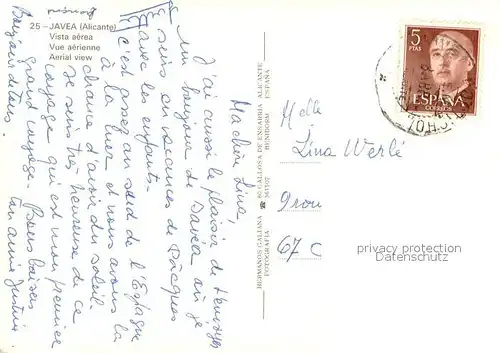 25 - JAVEA (Alicante)
Vista aérea
Vue aérienne
Aerial view
Ma chère Lina,
J'ai aussi le plaisir de t'envoyer
un bonjour de Javéa où je
suis en vacances de Pâcques
avec les enfants.
C'est assez au sud de l'Espagne
à la mer et nous avons la
chance d'avoir du soleil.
Je suis très heureuse de ce
voyage qui est mon premier
grand voyage. Bons baisers
Ton amie
Bonjour
HERMANOS GALIANA
FOTOGRAFIA
CALLOSA DE ENSARRIA - ALICANTE
BENIDORM ESPAÑA
5
PTAS
ESPAÑA
CORREOS
Melle
Lina Werlé
67 C
privacy protection
Datenschutz